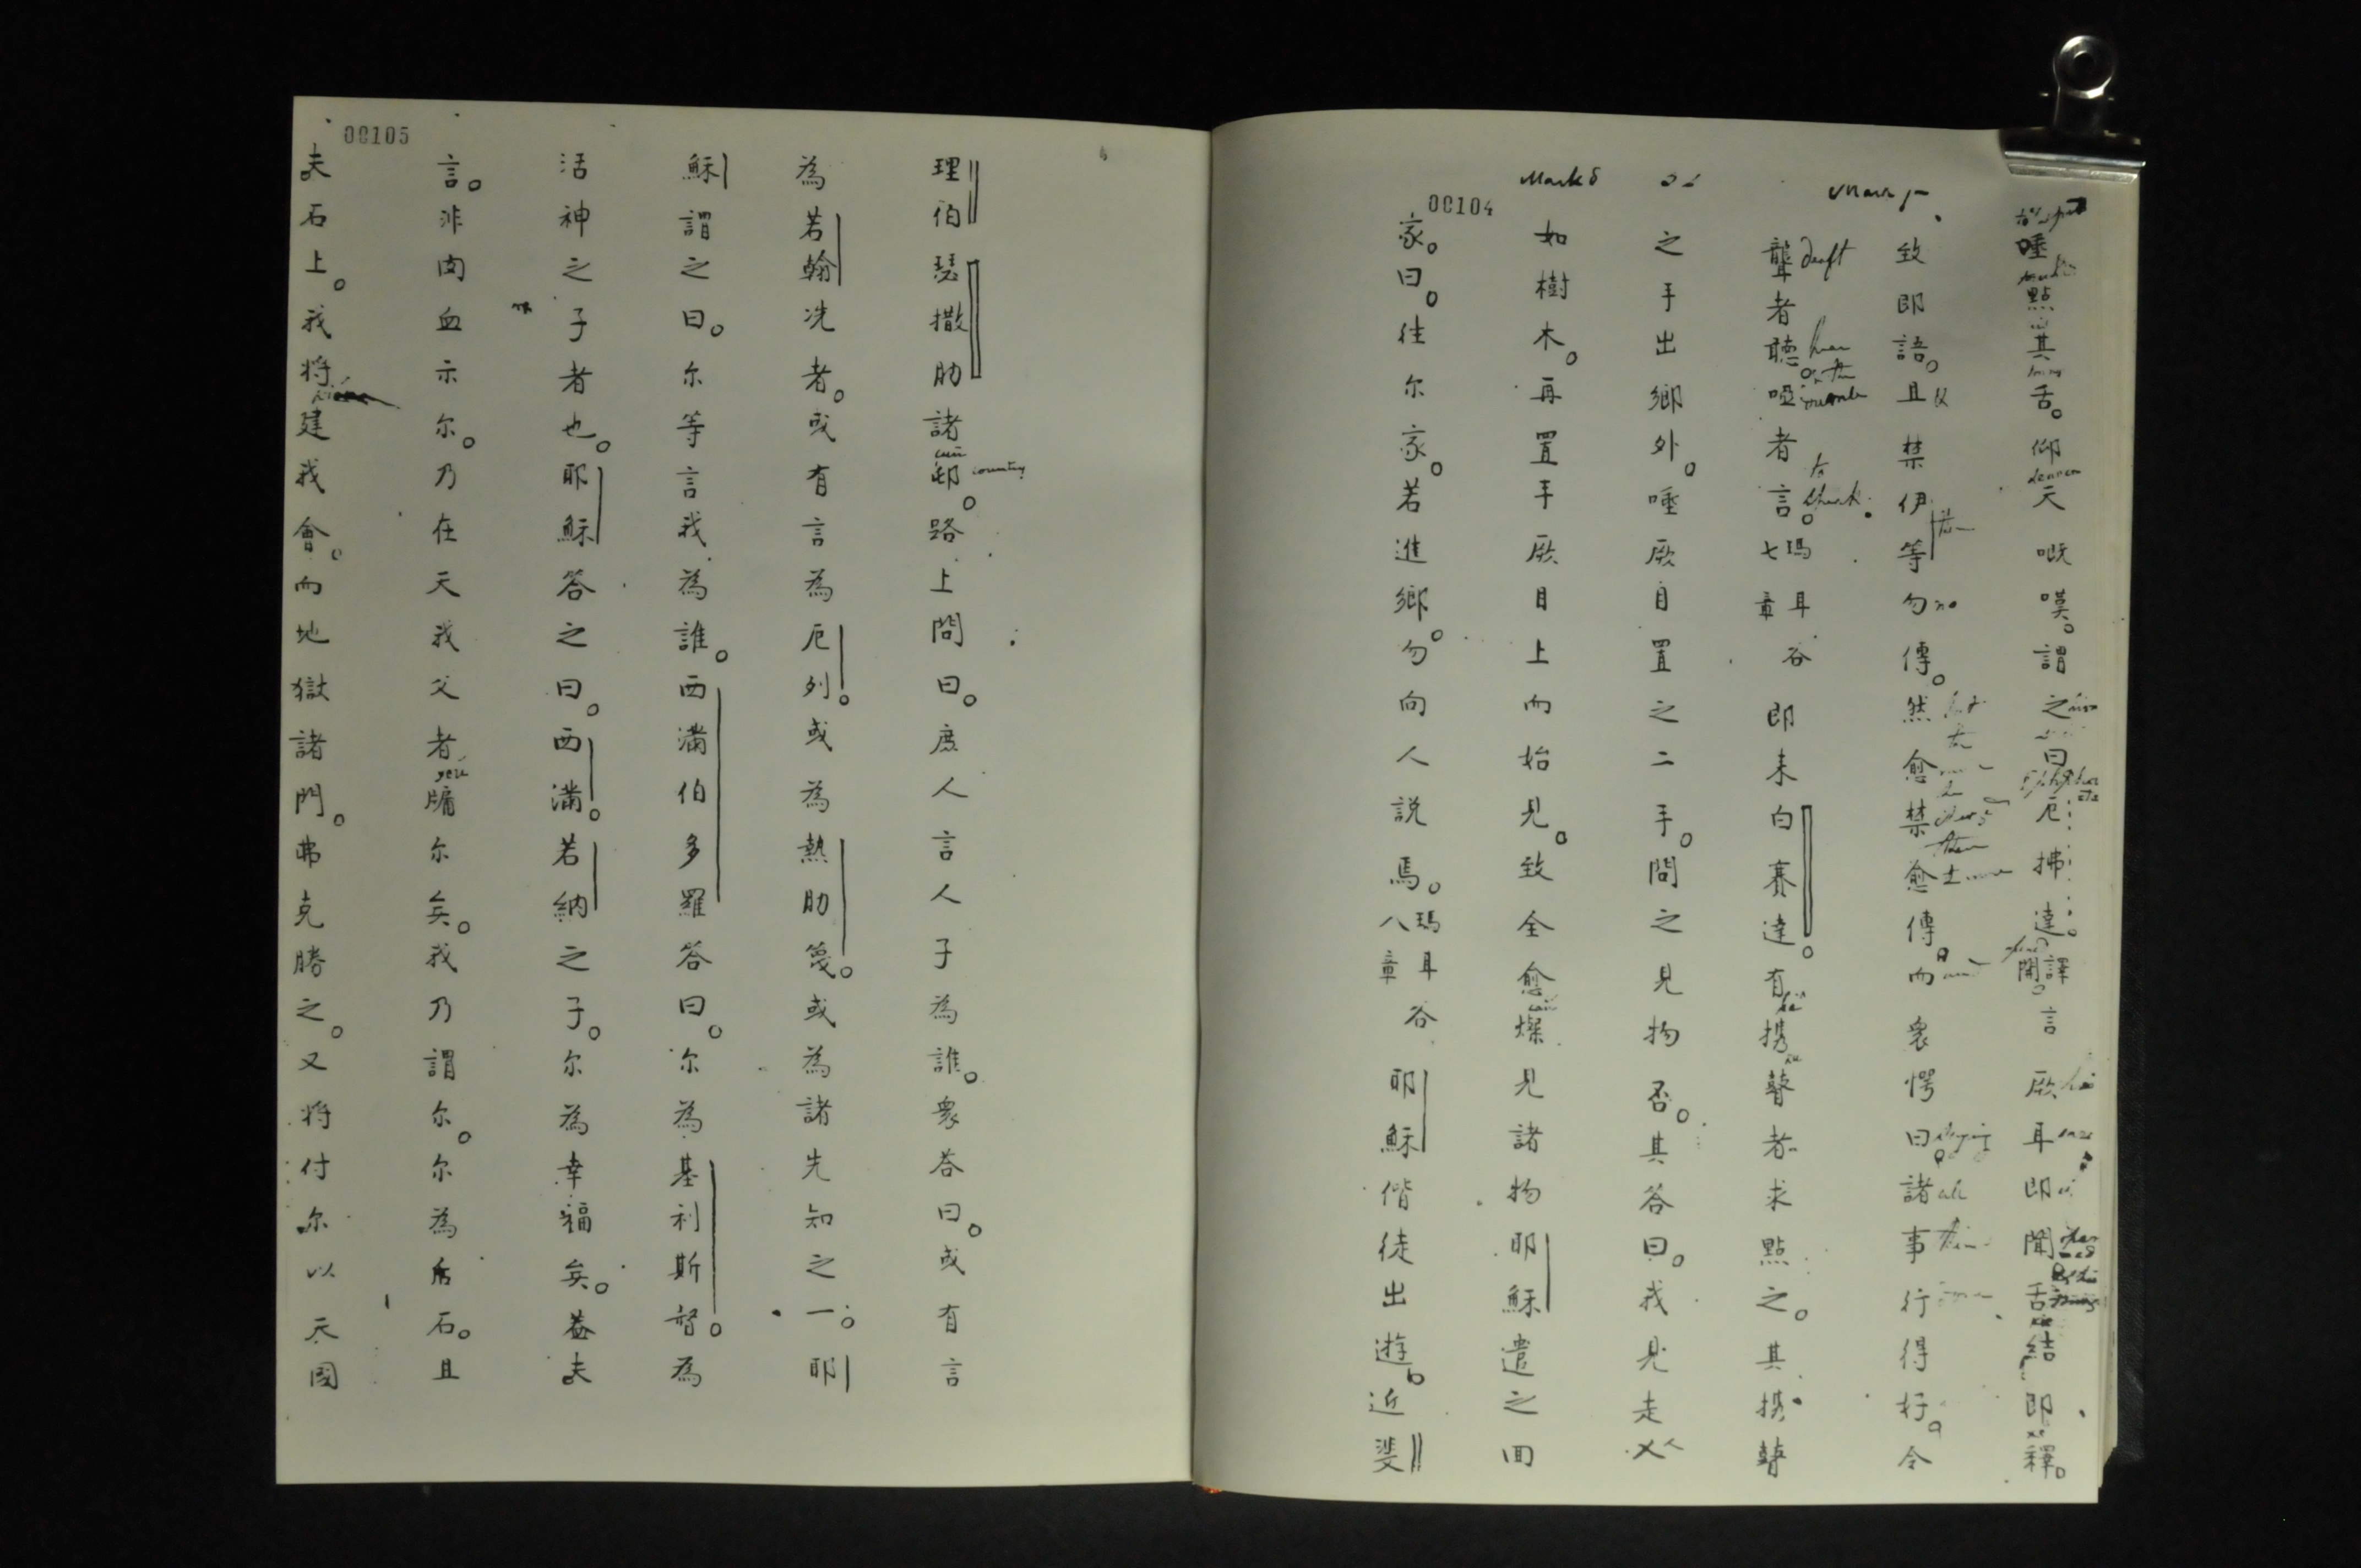 唾點其舌。仰天嘅嘆。謂之曰厄拂達。譯言開。厥耳即聞舌結即釋。
致即語。且禁伊等勿傳。然愈禁愈傳。而衆愕曰。諸事行得好。令
聾者聽。啞者言。瑪耳谷七章 即来白賽達。有携瞽者求點之。其携瞽
之手出鄉外。唾厥目置之二手。問之見物否。其答曰。我見走人
如樹木。再置手厥目上而始見。致全愈燦見諸物耶穌遣之回
家。曰。往尔家。若進鄉。勿向人説焉。瑪耳谷八章 耶穌偕徒出遊。近斐
理伯瑟撒肋諸邨。路上問曰。庶人言人子為誰。衆答曰。或有言
為若翰洗者。或有言為厄列。或為熱肋篾。或為諸先知之一。耶
穌謂之曰。尔等言我為誰。西滿伯多羅答曰。尔為基利斯督。為
活神之子者也。耶穌答之曰。西滿。若納之子。尔為幸福矣。蓋夫
言。非肉血示尔。乃在天我父者牖尔矣。我乃謂尔。尔為石。且
夫石上。我將建我會。而地獄諸門。弗克勝之。又将付尔以天國
00104
00105
Mark 8
deaft
country
no
all